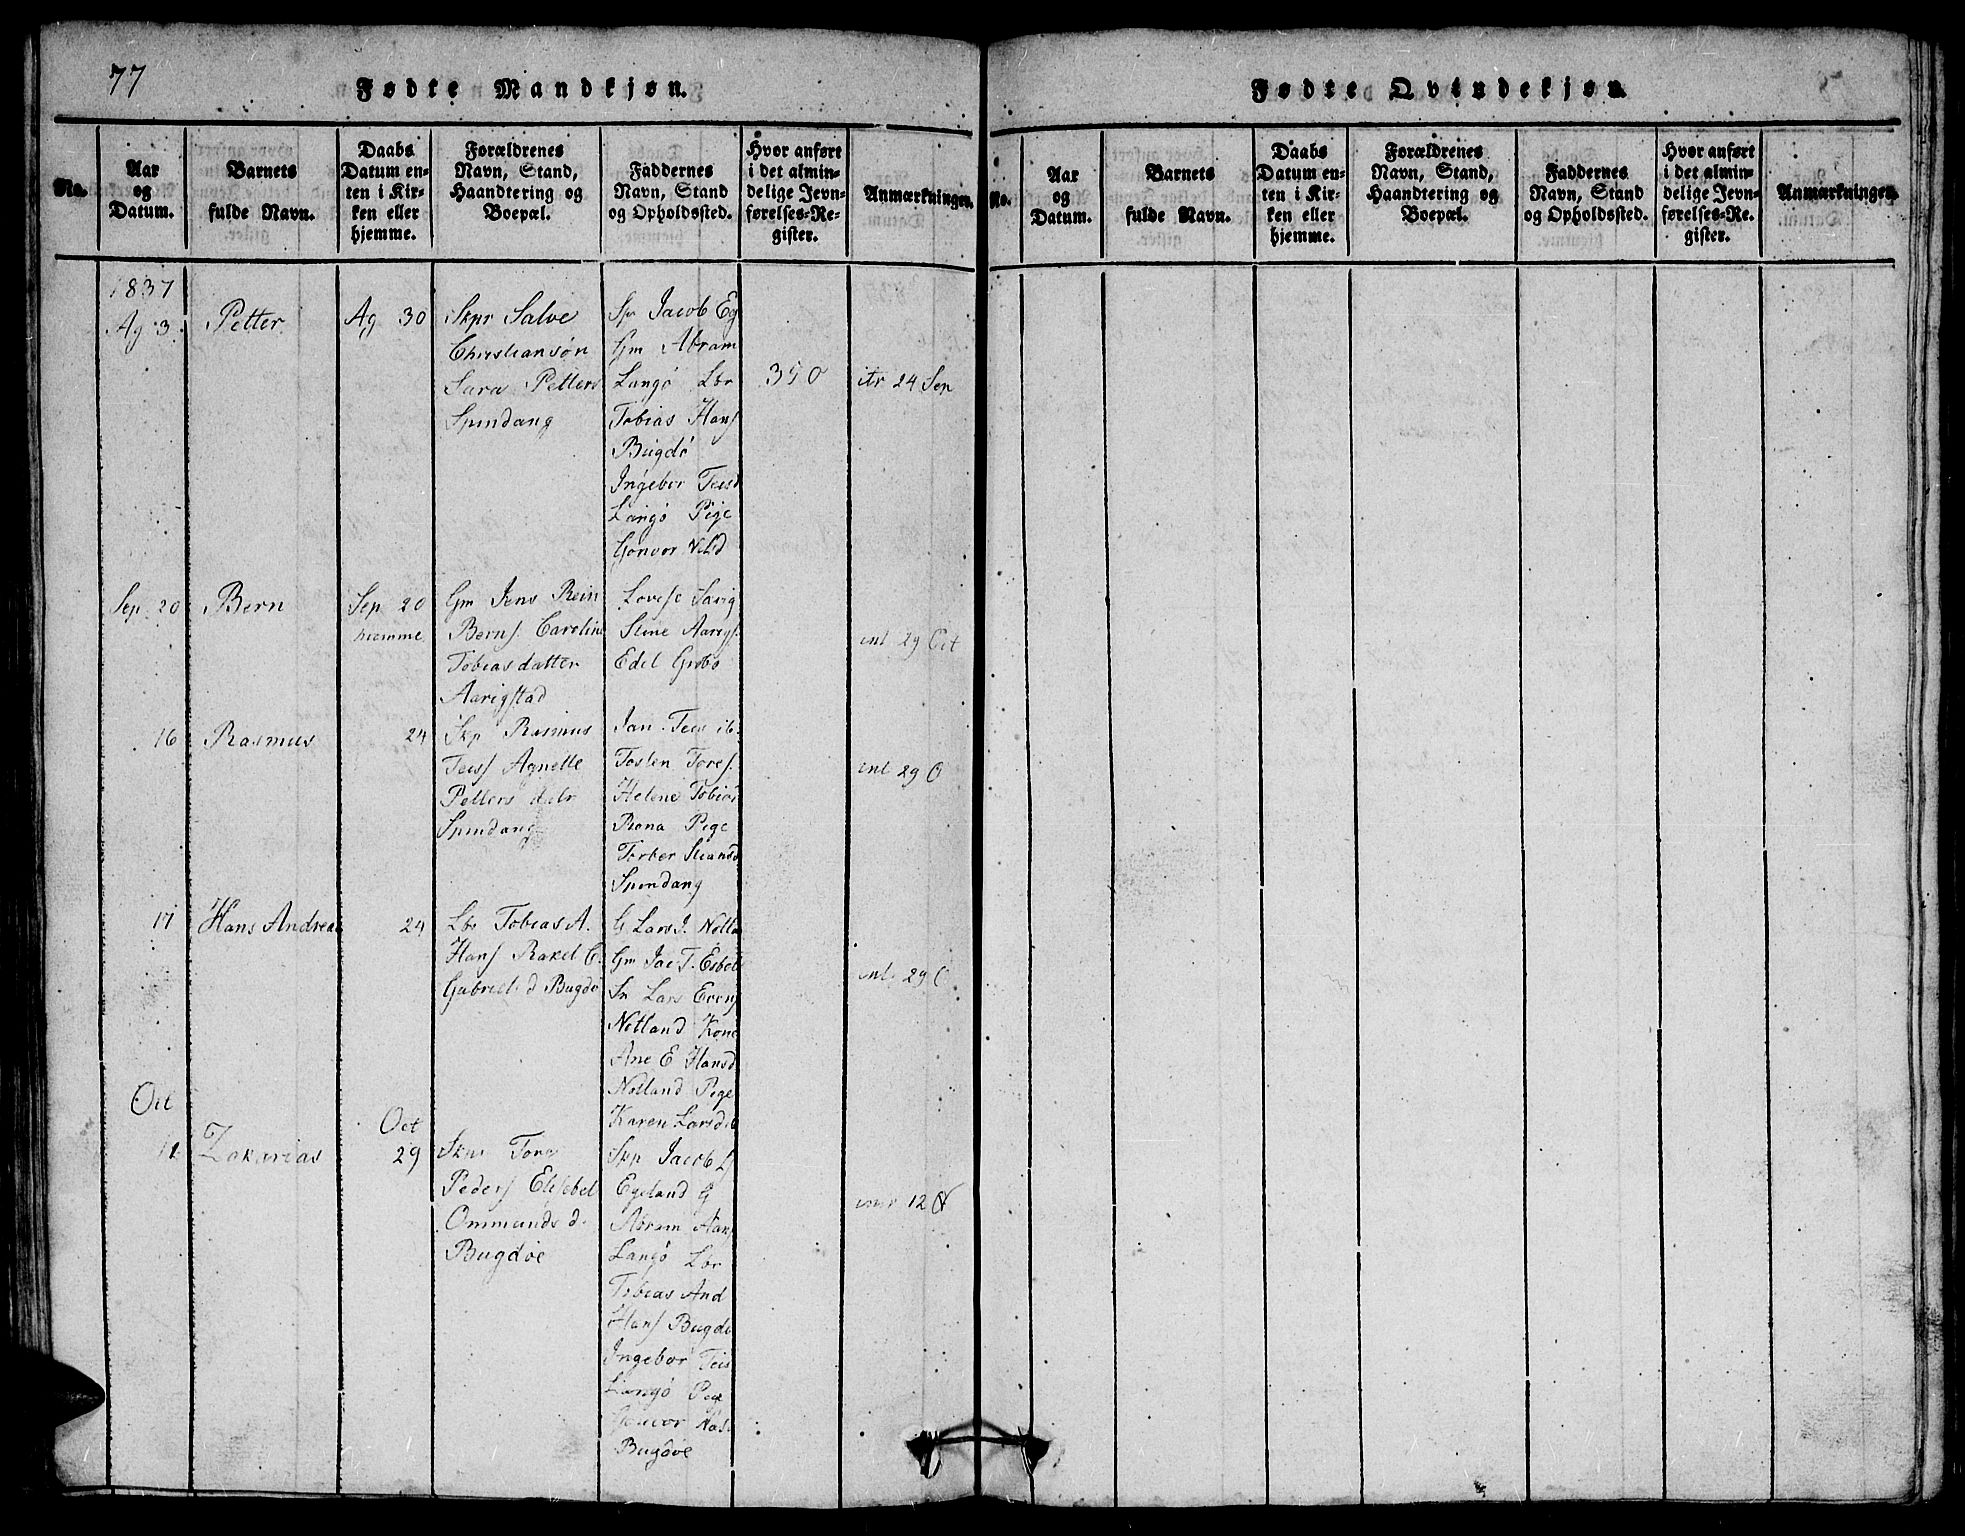 77
Fødte Mandkjøn.
No.
Aar
og
Datum.
Barnets
fulde Navn.
Daabs
Datum en-
ten i Kir-
ken eller
hjemme.
Forældrenes
Navn, Stand,
Haandtering og
Boepæl.
Faddernes
Navn, Stand
og Opholdssted.
Hvor anført
i det almin-
delige Jevn-
førelses-Re-
gister.
Anmærkninger.
1837
Ag 3
Petter
Ag 30
Skpr Salve
Christiansøn
Sara Petters
Spindang
Sp Jacob Eg
Gm Abram
Langö Lbr
Tobias Hans
Bugdö
Ingebor Teisd
Langö Pige
Gonvor
350
itr 24 Sep
Sep. 20
Bern
Sep 20
hiemme
Gm Jens Rein
Berns. Caroline
Tobiasdatter
Aarigstad
Lovise
Stine Aarigs.
Edel
int 29 Oct
16
Rasmus
24
Skp Rasmus
Teiss Agnette
Petters datr
Spindang
Jan Teis ib.
Tosten Tores.
Helene Tobias
Rona Pige
Torber
Spindang
int 29 O
17
Hans Andreas
24
Lbr Tobias A.
Hans Rakel C.
Gabriels d Bugdö
G Lars J. Notla
Gm Jac T.
Sr Lars Evens
Notland Kone
Ane E Hansd
Notland Pige
Karen Larsd
int 29 O
Oct
Zakarias
Oct
29
Skpr Tore
Peders Elisabet
Ommunds d.
Bugdöe
Skp Jacob
Egeland G
Abram
Langö Lbr
Tobias And
Hans Bugdö
Ingebor Teis
Langö Pige
Gonvor
Bugdöe
12 N
Fødte Qvindekjøn.
No.
Aar
og
Datum.
Barnets
fulde Navn.
Daabs
Datum en-
ten i Kir-
ken eller
hjemme.
Forældrenes
Navn, Stand,
Haandtering og
Boepæl.
Faddernes
Navn, Stand
og Opholdssted.
Hvor anført
i det almin-
delige Jevn-
førelses-Re-
gister.
Anmærkninger.